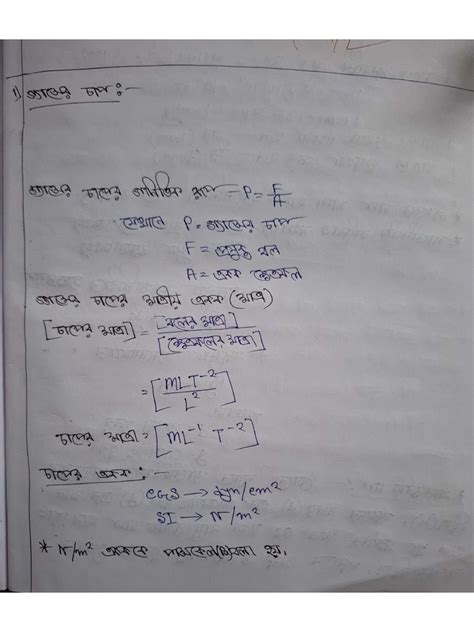 1) গ্যাসের চাপ :-
গ্যাসের চাপের গানিতিক রূপ - P = F/A
যেখানে P = গ্যাসের চাপ
F = প্রযুক্ত বল
A = একক ক্ষেত্রফল
গ্যাসের চাপের মাত্রীয় একক (মাত্রা)
[চাপের মাত্রা] = [বলের মাত্রা] / [ক্ষেত্রফলের মাত্রা]
= [MLT⁻² / L²]
চাপের মাত্রা = [ML⁻¹ T⁻²]
চাপের একক :-
CGS → dyn/cm²
SI → N/m²
* N/m² একককে পাসকেল(Pa)বলা হয়।